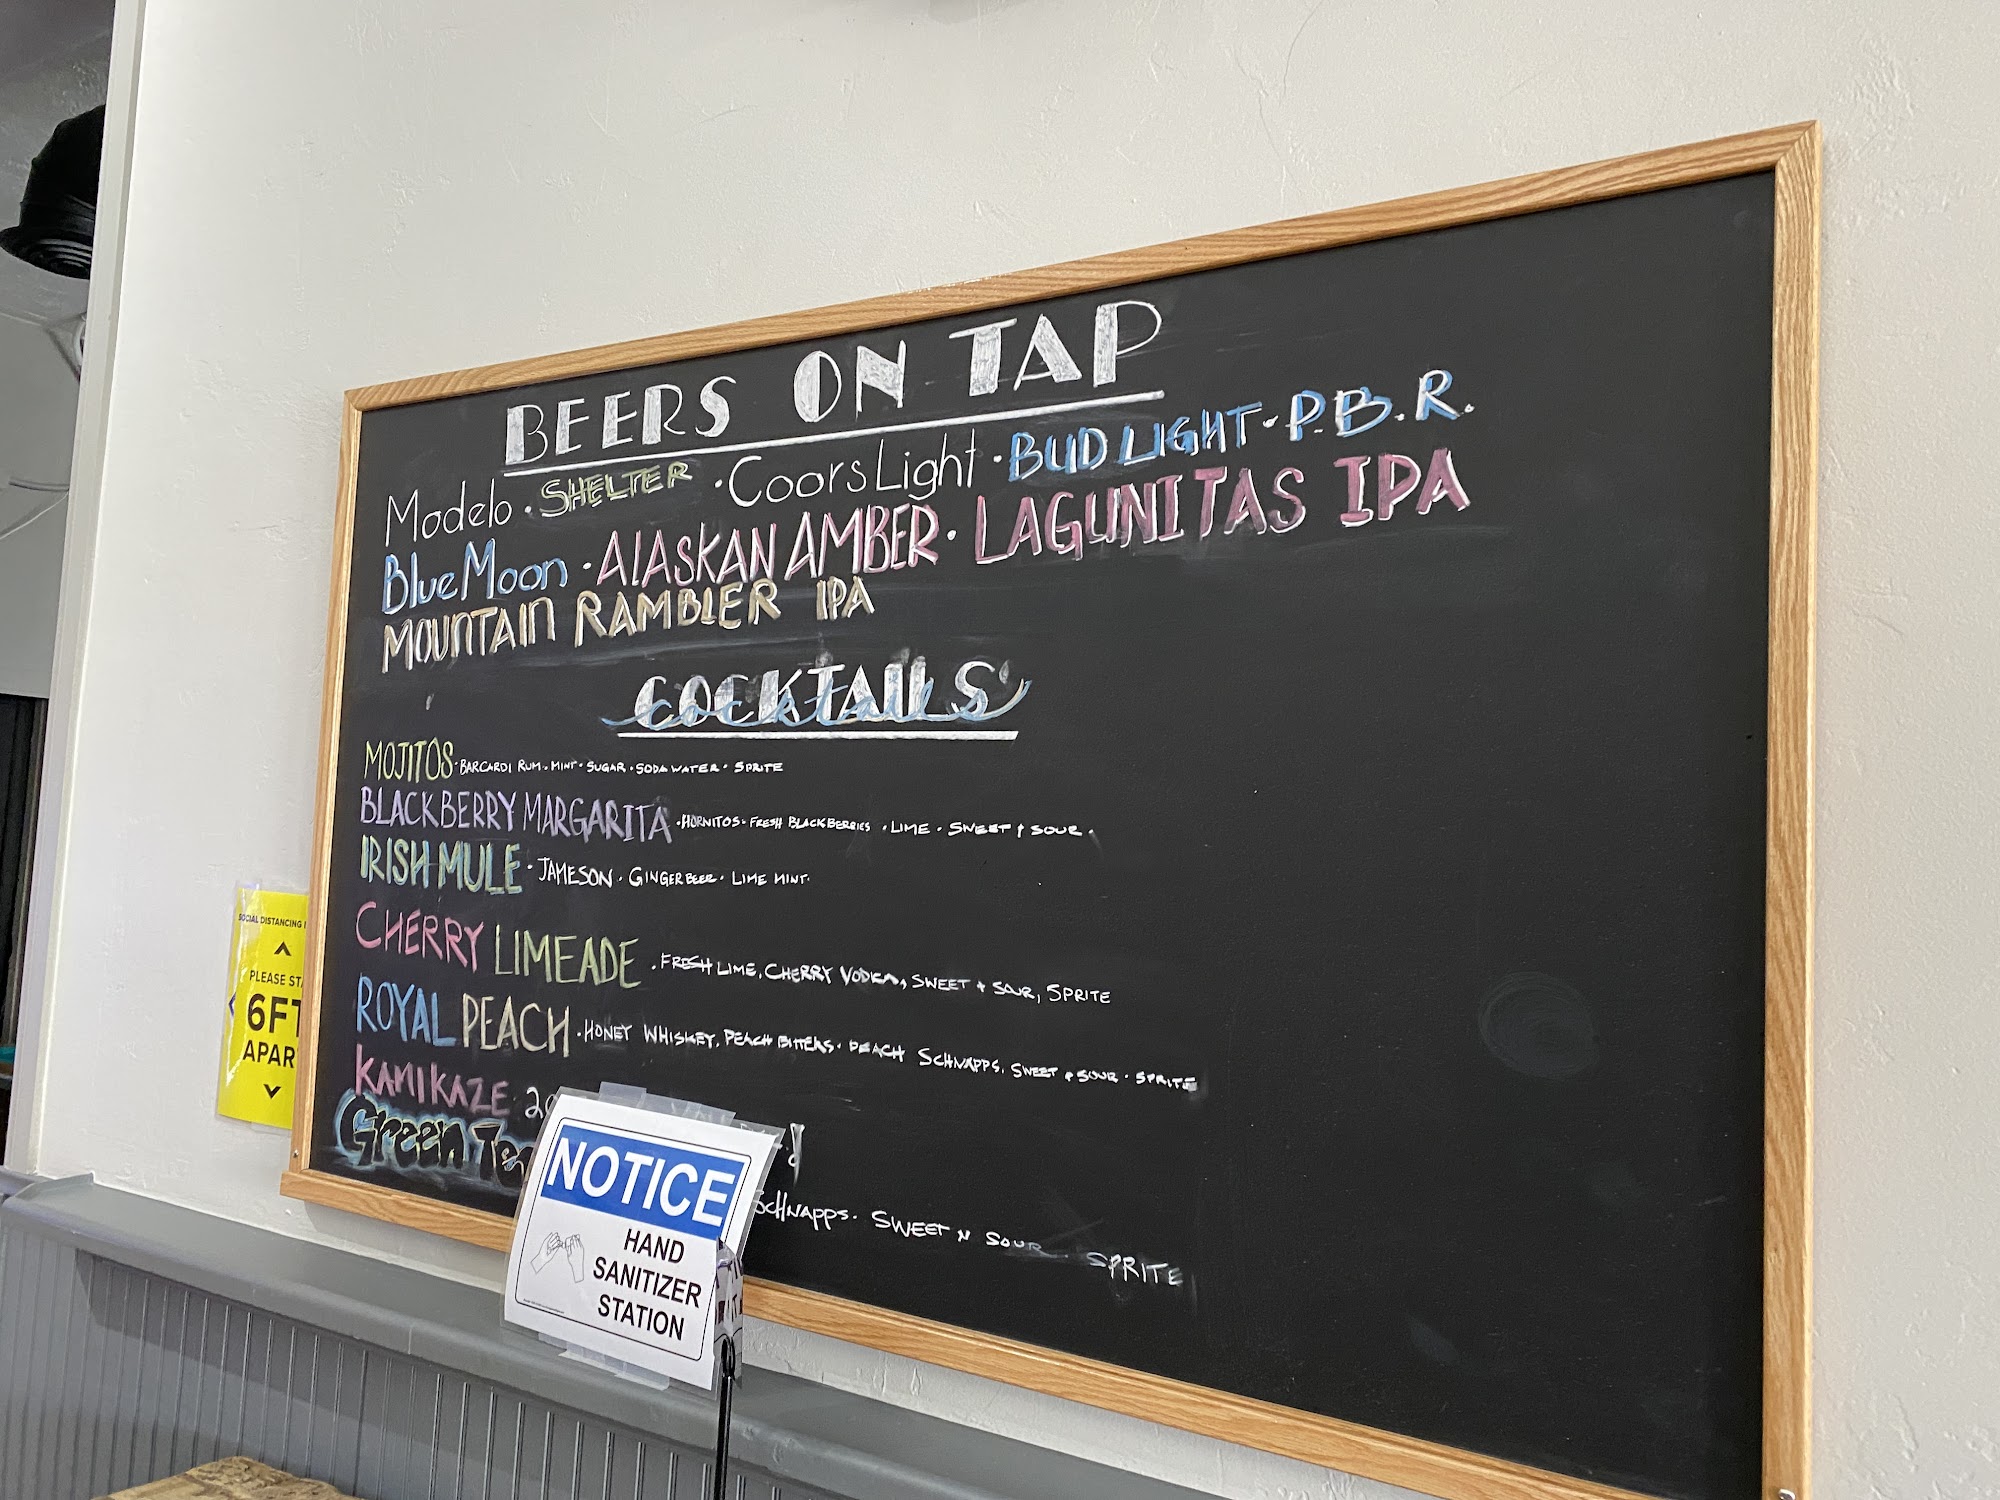 BEERS ON TAP
Modelo · SHELTER · Coors Light · BUD LIGHT · P.B.R.
Blue Moon · ALASKAN AMBER · LAGUNITAS IPA
MOUNTAIN RAMBLER IPA
COCKTAILS
cocktails
MOJITOS · BARCARDI RUM · MINT · SUGAR · SODA WATER · SPRITE
BLACKBERRY MARGARITA · HORNITOS · FRESH BLACKBERRIES · LIME · SWEET & SOUR ·
IRISH MULE · JAMESON · GINGER BEER · LIME MINT ·
CHERRY LIMEADE · FRESH LIME, CHERRY VODKA, SWEET & SOUR, SPRITE
ROYAL PEACH · HONEY WHISKEY, PEACH BITTERS · PEACH SCHNAPPS, SWEET & SOUR · SPRITE
KAMIKAZE
Green Tea
SCHNAPPS · SWEET N SOUR · SPRITE
NOTICE
HAND
SANITIZER
STATION
SOCIAL DISTANCING
PLEASE
6FT
APAR